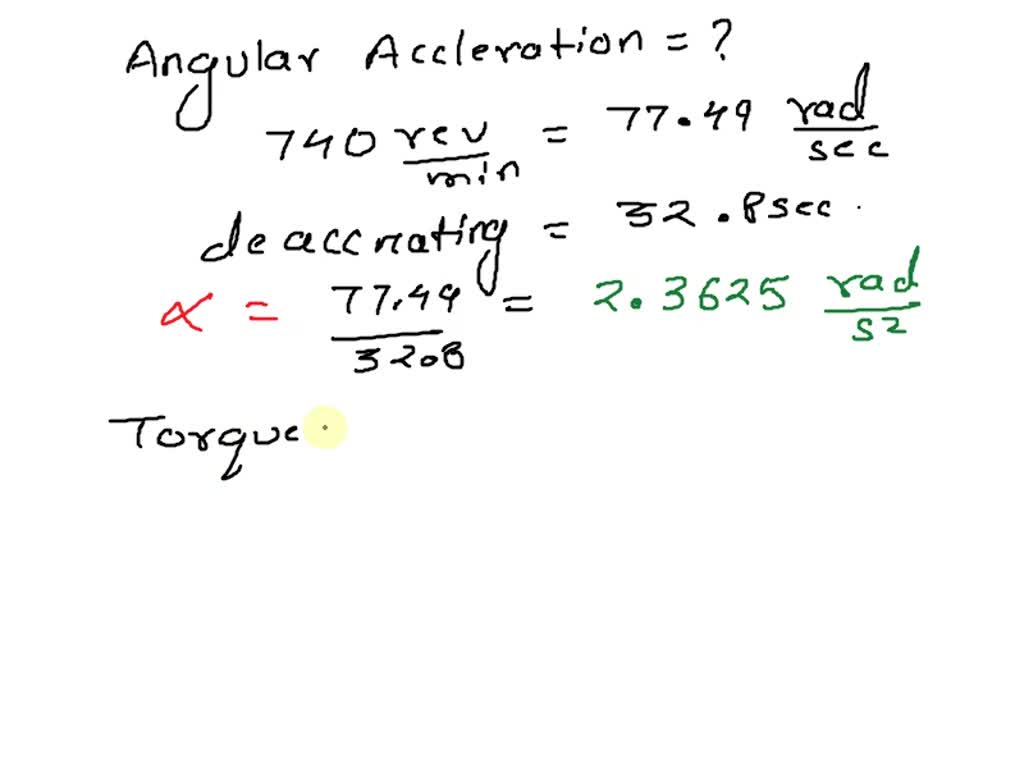 Angular Accleration = ?
740 rev/min = 77.49 rad/sec
deaccrating = 32.8sec.
α = 77.49/32.8 = 2.3625 rad/s2
Torque